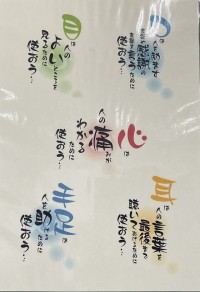 口は
人を励ます
言葉や感謝の
言葉を言うために
使おう…
目は
人の
よいところを
見るために
使おう…
心は
人の
痛みが
わかる
ために
使おう…
耳は
人の
言葉を
最後まで
聴いてあげるために
使おう…
手足は
人を
助ける
ために
使おう…